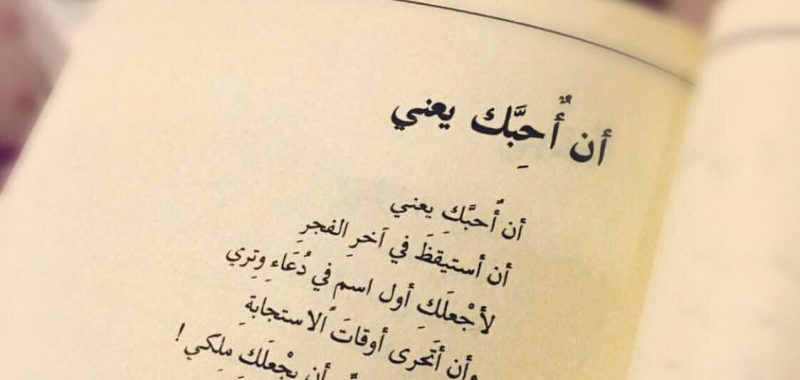 أن أُحِبَّك يعني
أن أُحبَّكِ يعني
أن أستيقظَ في آخرِ الفجرِ
لأجْعلَكِ أول اسم في دُعَاءِ وِترِي
وأن أتحَرى أوقاتَ الاستجابةِ
أن يجْعلَك مِلكي!